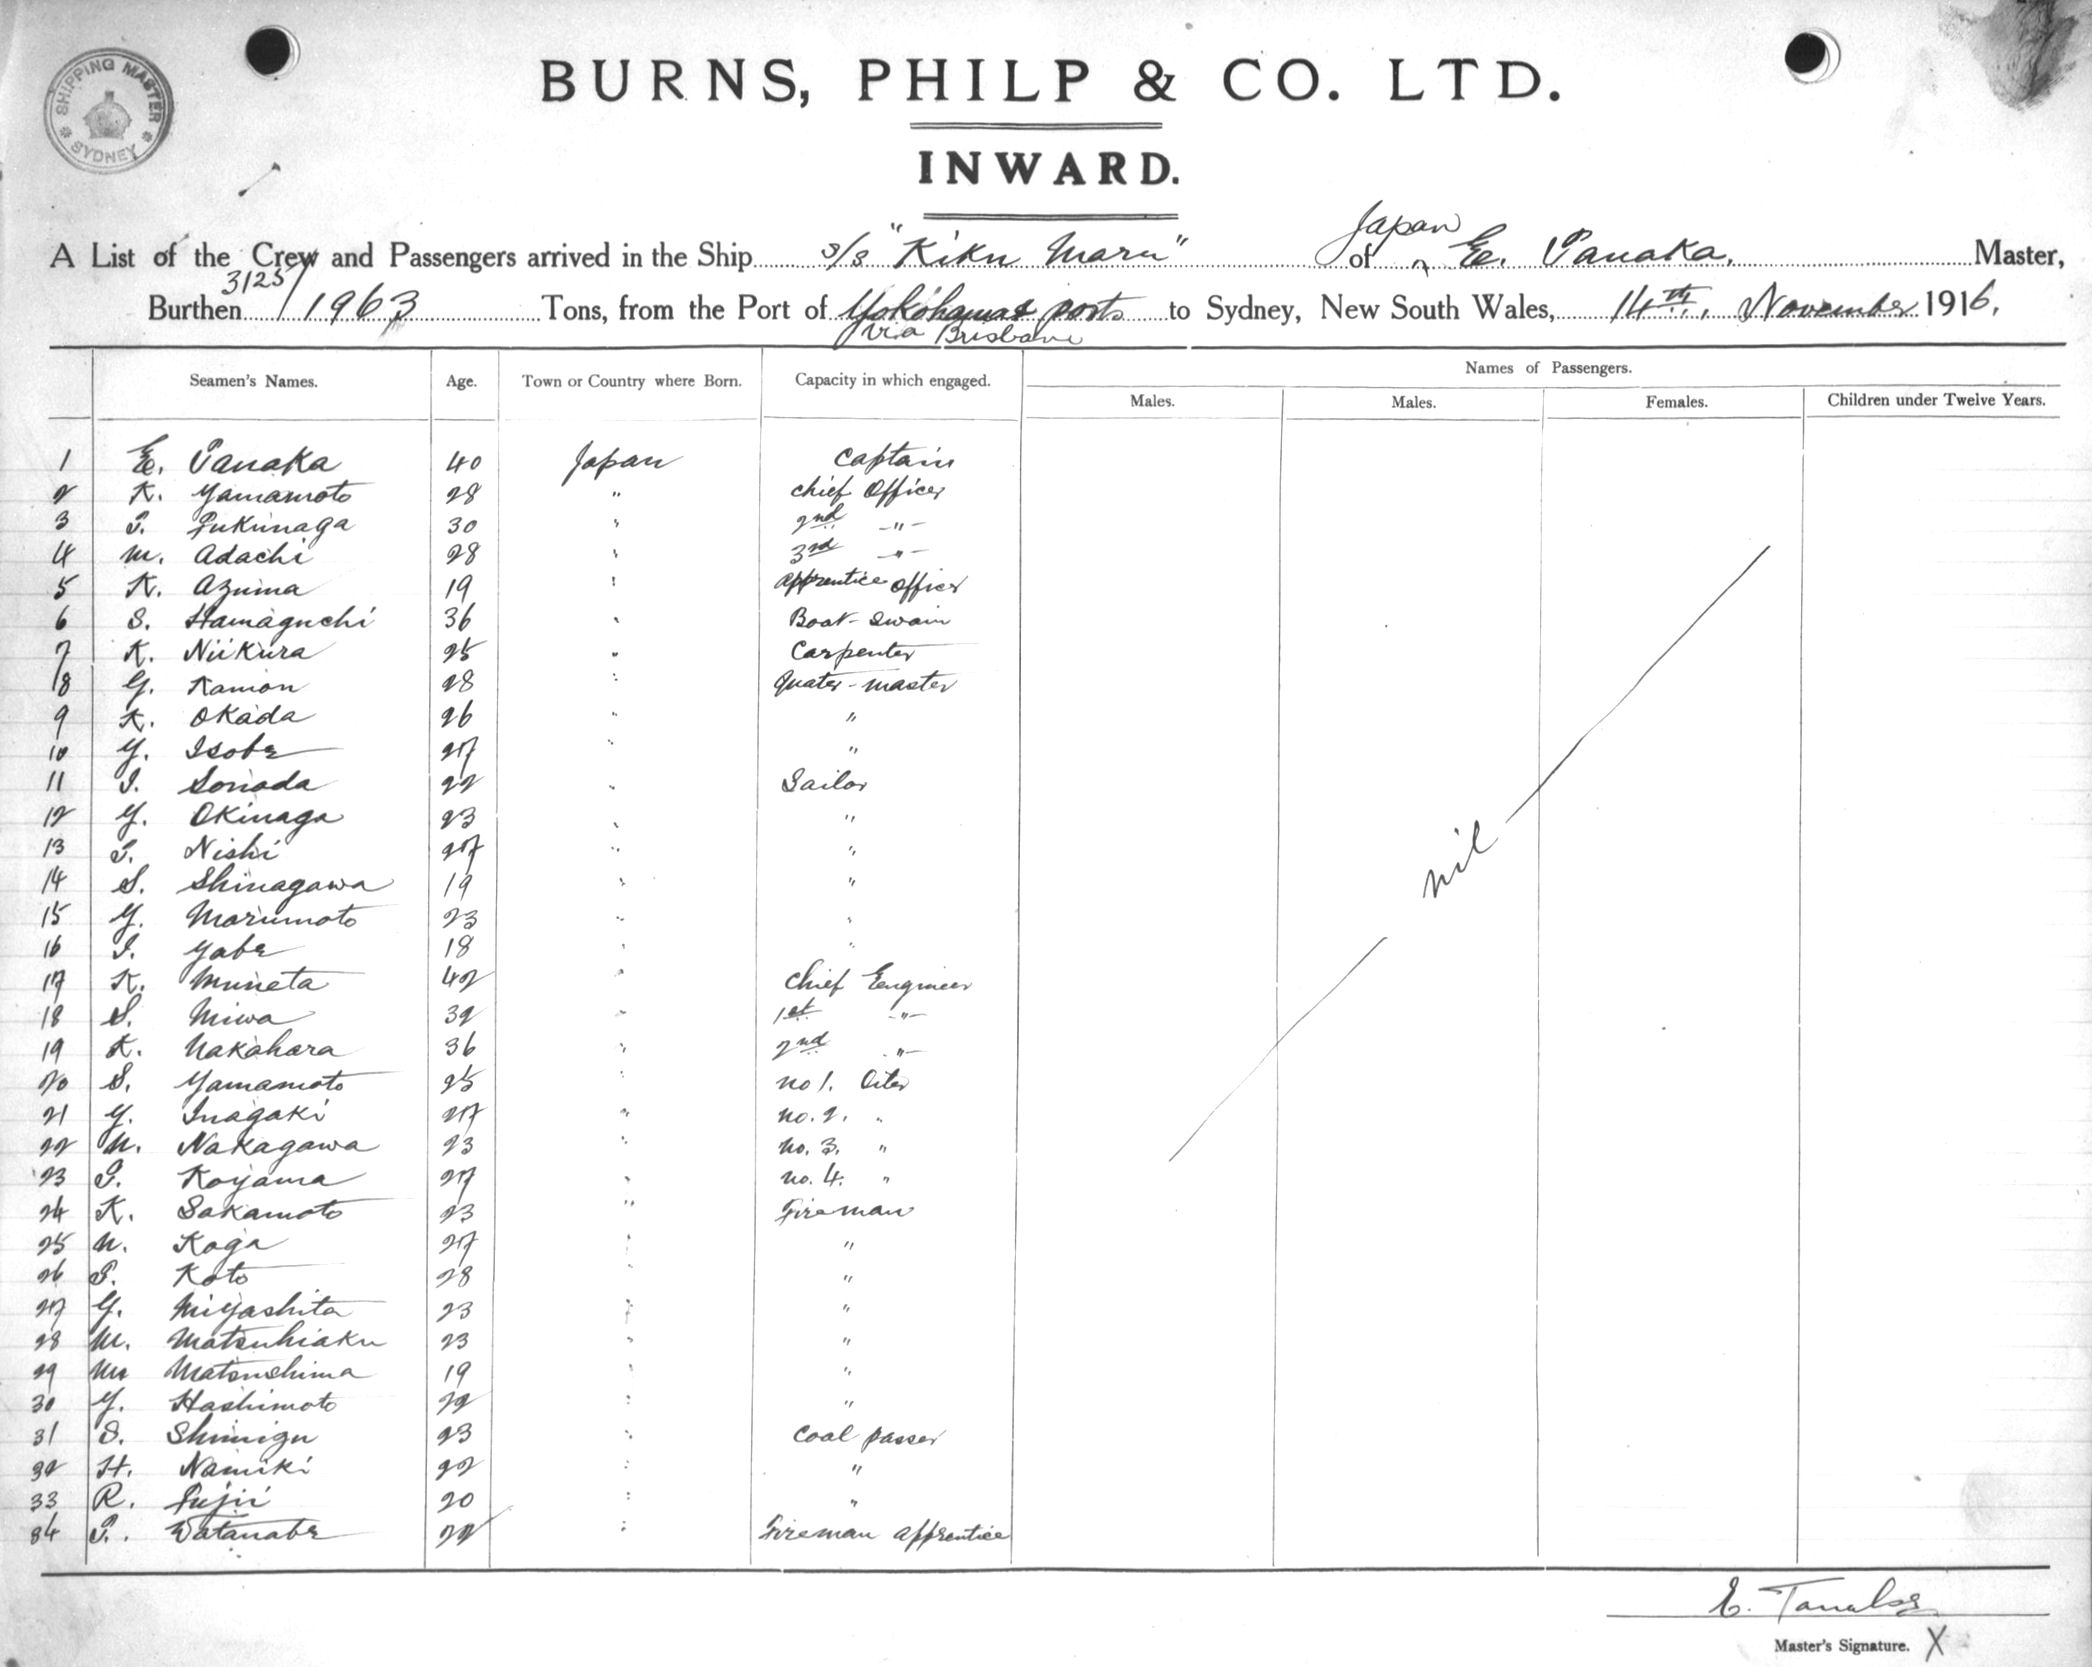 SHIPPING MASTER
SYDNEY
BURNS, PHILP & CO. LTD.
INWARD.
A List of the Crew and Passengers arrived in the Ship S/S "Kiku Maru" of Japan E. Tanaka. Master,
Burthen 3125/1963 Tons, from the Port of Yokohama & ports via Brisbane to Sydney, New South Wales, 14th November 1916.
Seamen's Names. Age. Town or Country where Born. Capacity in which engaged. Names of Passengers.
Males. Males. Females. Children under Twelve Years.
1 E. Tanaka 40 Japan Captain
2 K. Yamamoto 28 " Chief Officer
3 T. Fukunaga 30 " 2nd -"-
4 M. Adachi 28 " 3rd -"-
5 K. Azuma 19 " Apprentice Officer
6 S. Hamaguchi 36 " Boat-swain
7 K. Niikura 25 " Carpenter
8 G. Kamon 28 " Quater-master
9 K. Okada 26 " "
10 Y. Isobe 27 " "
11 I. Sonoda 22 " Sailor
12 Y. Okinaga 23 " "
13 T. Nishi 27 " "
14 S. Shinagawa 19 " "
15 Y. Marumoto 23 " "
16 I. Yabe 18 " "
17 K. Muneta 42 " Chief Engineer
18 S. Miwa 32 " 1st -"-
19 K. Nakahara 36 " 2nd "-
20 S. Yamamoto 25 " No 1. Oiler
21 Y. Inagaki 27 " No. 2. "
22 N. Nakagawa 23 " No. 3. "
23 T. Koyama 27 " No. 4. "
24 K. Sakamoto 23 " Fireman
25 N. Koga 27 " "
26 T. Koto 28 " "
27 Y. Miyashita 23 " "
28 M. Matsuhiaku 23 " "
29 M. Matsushima 19 " "
30 Y. Hashimoto 22 " "
31 S. Shimizu 23 " Coal passer
32 H. Namiki 22 " "
33 R. Fujii 20 " "
34 T. Watanabe 22 " Fireman apprentice
nil
E. Tanaka
Master's Signature. X